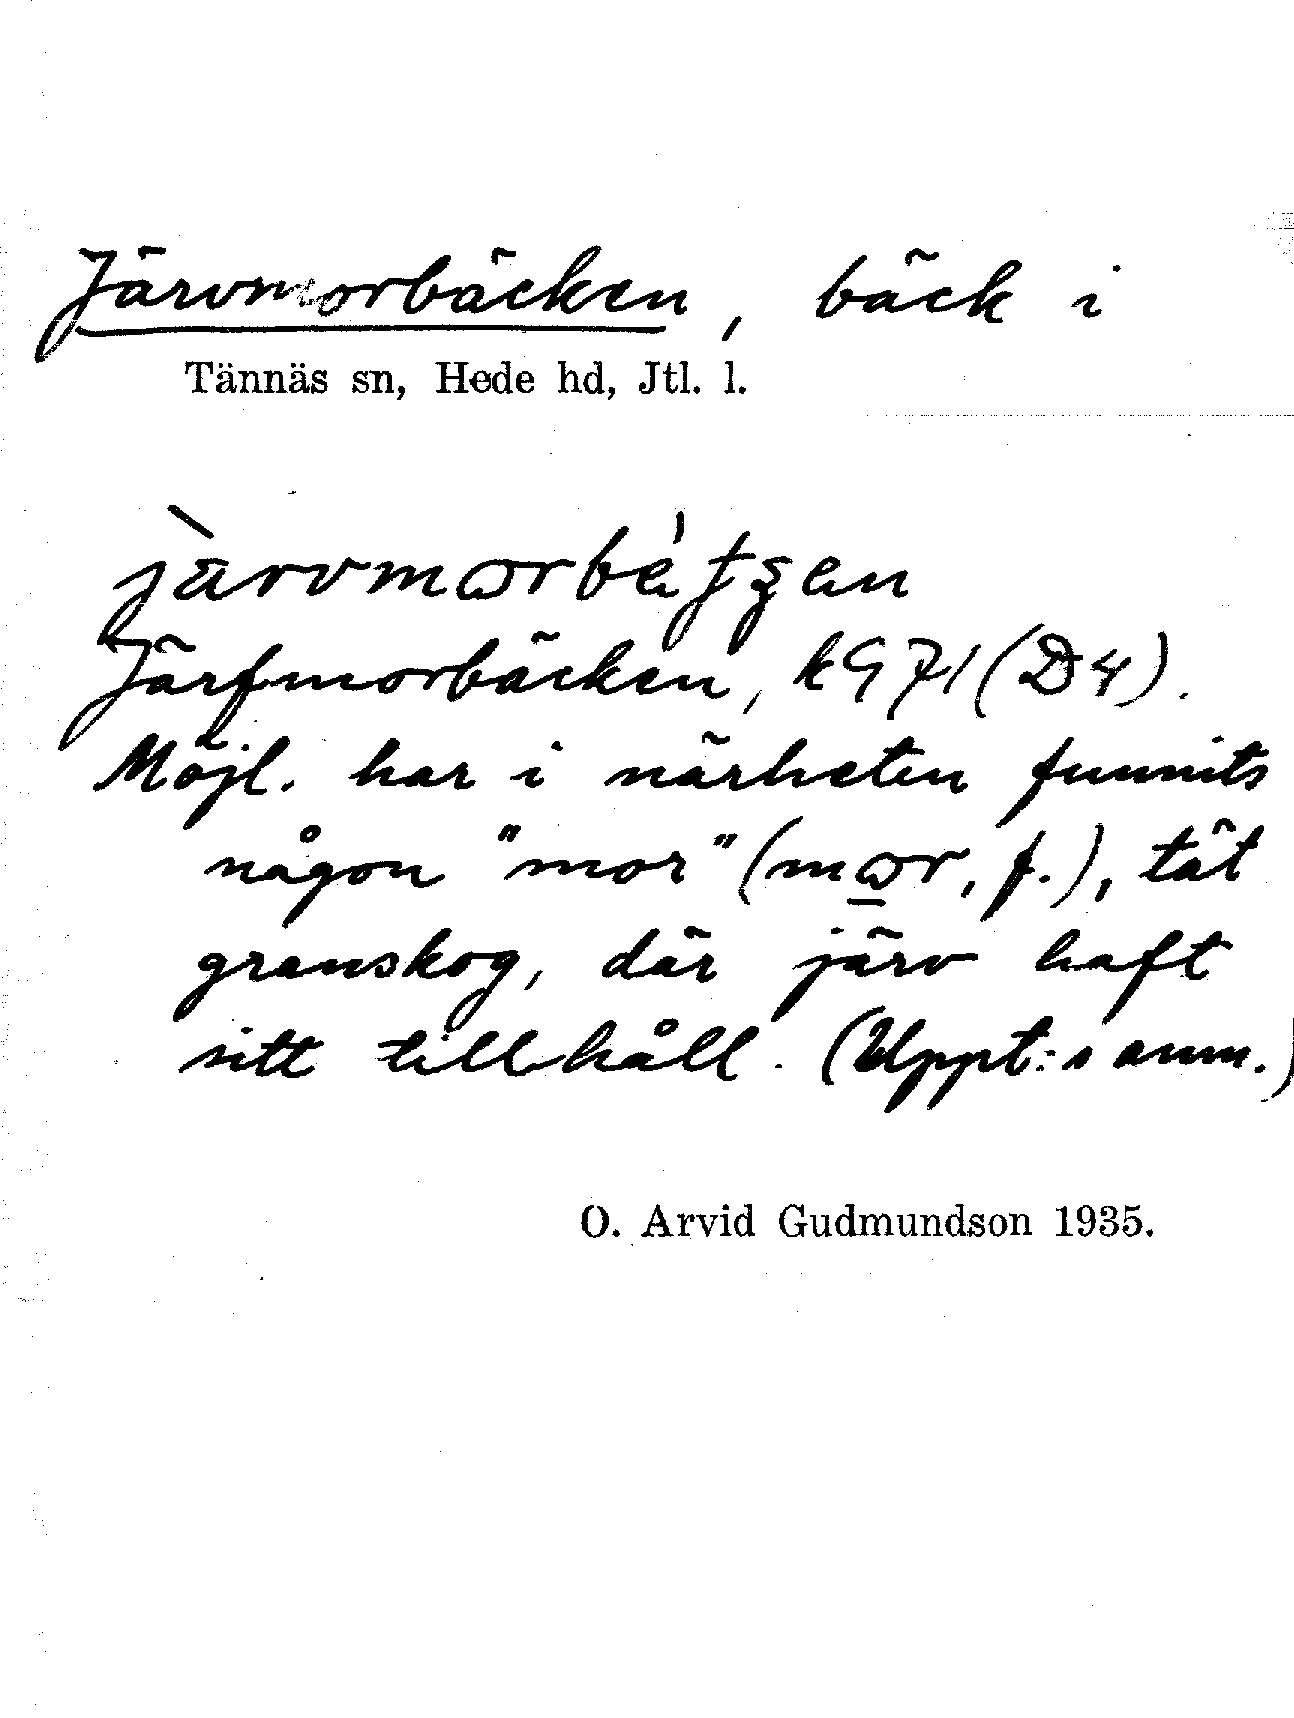 Järvmorbäcken, bäck i
Tännäs sn, Hede hd, Jtl. l.
Järfmorbäcken, kG 71 (D4).
Möjl. har i närheten funnits
någon "mor" (mɷr, f.), tät
granskog, där järv haft
sitt tillhåll. (Uppt:s anm.)
O. Arvid Gudmundson 1935.